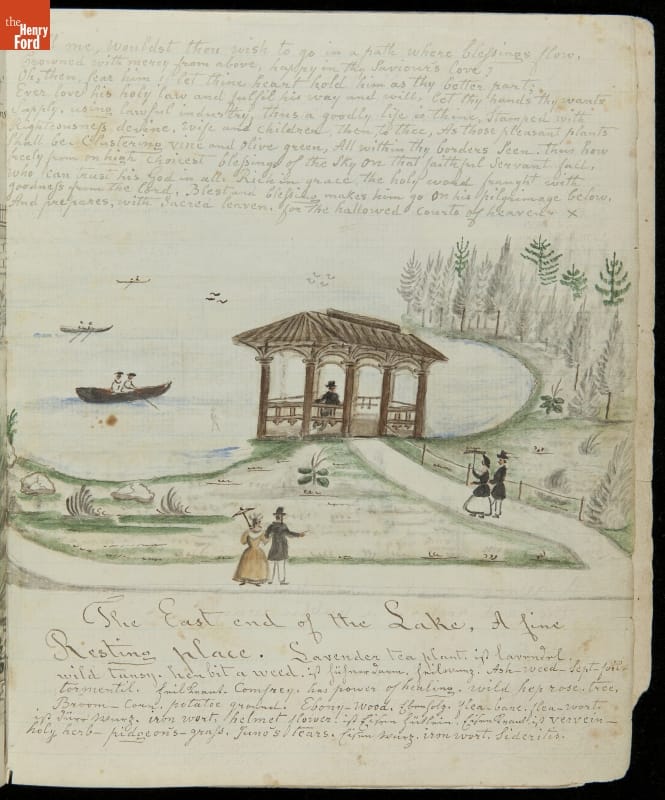 the
Henry
Ford
me, wouldst thou wish to go in a path where blessings flow,
Crowned with mercy from above, happy in thy Saviour's love?
Oh, then, fear him! let thine heart hold him as thy better part;
Ever love his holy law and fulfil his way and will, Let thy hands thy wants
supply, using lawful industry, thus a goodly life is thine, stamped with
Righteousness devine, wife and children, then, to thee, As those pleasant plants
shall be. Clustering vine and olive green, All within thy borders seen. thus how
freely from on high Choicest blessings of the Sky On that faithful servant fall,
who can trust his God in all. Rich in grace, the holy word fraught with
goodness from the Lord, Blest and blessing makes him go on his pilgrimage below,
And prepares, with Sacred leaven, for the hallowed courts of heaven x
The East end of the Lake, A fine
Resting place. Lavender tea plant. ist Lavendel.
wild tansy. henbit a weed. ist Hühner Darm, Heilwurz. Ash-weed-Sept-foil
tormentil. Heil Kraut. Comfrey, has power of healing, wild hep rose. tree.
Broom-Corn. potatoe ground. Ebony-Wood. Ebenholz. flea-bane. flea-wort.
ist Dürr Wurz. iron wort. helmet flower. ist Eisen Hütlein. Eisen Kraut ist vervein-
holy herb-pidgeon's-grass. Juno's tears. Eisen Wurz. iron wort. Siderites.